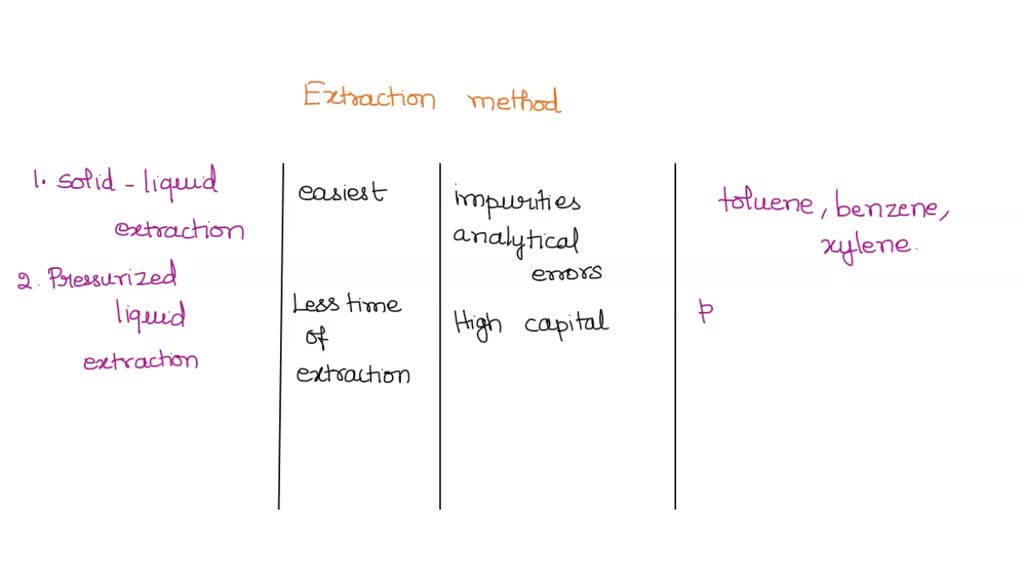 Extraction method
1. solid - liquid
extraction
easiest
impurities
analytical
errors
toluene, benzene,
xylene.
2. Pressurized
liquid
extraction
Less time
of
extraction
High capital
p